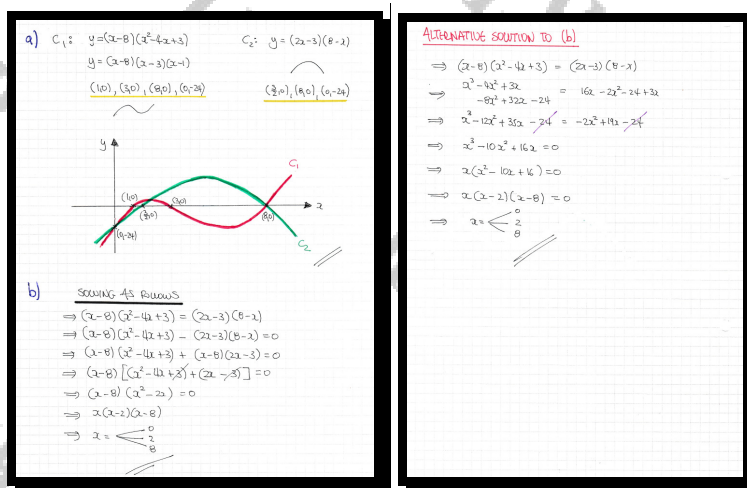 a) C₁: y=(x-8)(x²-4x+3)
y=(x-8)(x-3)(x-1)
(1,0), (3,0), (8,0), (0,-24)
C₂: y=(2x-3)(8-x)
(3/2,0), (8,0), (0,-24)
y
C₁
(1,0)
(3/2,0)
(3,0)
(8,0)
x
(0,-24)
C₂
b) SOLVING AS FOLLOWS
⇒ (x-8)(x²-4x+3) = (2x-3)(8-x)
⇒ (x-8)(x²-4x+3) - (2x-3)(8-x) = 0
⇒ (x-8)(x²-4x+3) + (x-8)(2x-3) = 0
⇒ (x-8)[(x²-4x+3)+(2x-3)] = 0
⇒ (x-8)(x²-2x) = 0
⇒ x(x-2)(x-8)
⇒ x = 0
2
8
ALTERNATIVE SOLUTION TO (b)
⇒ (x-8)(x²-4x+3) = (2x-3)(8-x)
⇒ x³-4x²+3x
-8x²+32x-24 = 16x-2x²-24+3x
⇒ x³-12x²+35x-24 = -2x²+19x-24
⇒ x³-10x²+16x=0
⇒ x(x²-10x+16)=0
⇒ x(x-2)(x-8)=0
⇒ x= 0
2
8